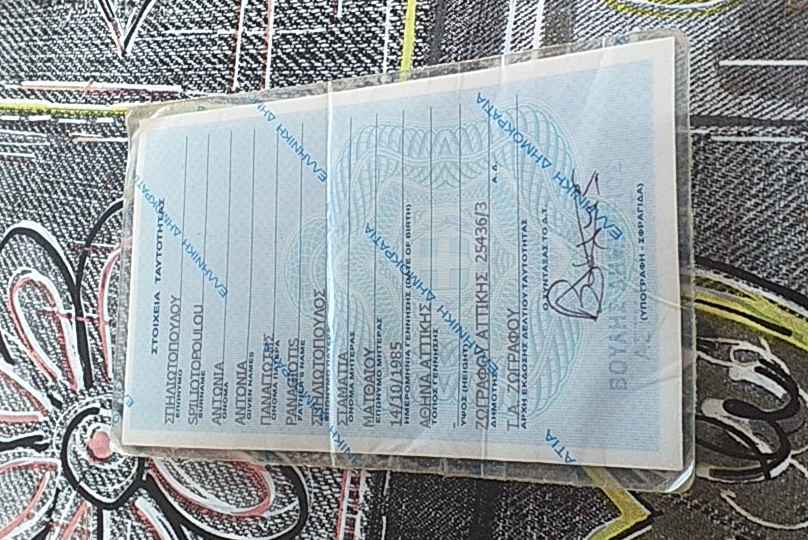 ΣΤΟΙΧΕΙΑ ΤΑΥΤΟΤΗΤΑΣ
ΣΠΗΛΙΩΤΟΠΟΥΛΟΥ
ΕΠΩΝΥΜΟ
SPILIOTOPOULOU
SURNAME
ΑΝΤΩΝΙΑ
ΟΝΟΜΑ
ANTONIA
GIVEN NAMES
ΠΑΝΑΓΙΩΤΗΣ
ΟΝΟΜΑ ΠΑΤΕΡΑ
PANAGIOTIS
FATHER'S NAME
ΣΠΗΛΙΩΤΟΠΟΥΛΟΣ
ΣΤΑΜΑΤΙΑ
ΟΝΟΜΑ ΜΗΤΕΡΑΣ
ΕΠΩΝΥΜΟ ΜΗΤΕΡΑΣ
14/10/1985
ΗΜΕΡΟΜΗΝΙΑ ΓΕΝΝΗΣΗΣ (DATE OF BIRTH)
ΑΘΗΝΑ ΑΤΤΙΚΗΣ
ΤΟΠΟΣ ΓΕΝΝΗΣΗΣ
-
ΥΨΟΣ (HEIGHT)
ΖΩΓΡΑΦΟΥ ΑΤΤΙΚΗΣ 25436/3
ΔΗΜΟΤΗΣ Α.Α.
Τ.Α. ΖΩΓΡΑΦΟΥ
ΑΡΧΗ ΕΚΔΟΣΗΣ ΔΕΛΤΙΟΥ ΤΑΥΤΟΤΗΤΑΣ
Ο ΣΥΝΤΑΞΑΣ ΤΟ Δ.Τ.
(ΥΠΟΓΡΑΦΗ - ΣΦΡΑΓΙΔΑ)
ΕΛΛΗΝΙΚΗ ΔΗΜΟΚΡΑΤΙΑ
ΕΛΛΗΝΙΚΗ ΔΗΜΟΚΡΑΤΙΑ
ΕΛΛΗΝΙΚΗ ΔΗΜΟΚΡΑΤΙΑ
ΕΛΛΗΝΙΚΗ ΔΗΜΟΚΡΑΤΙΑ